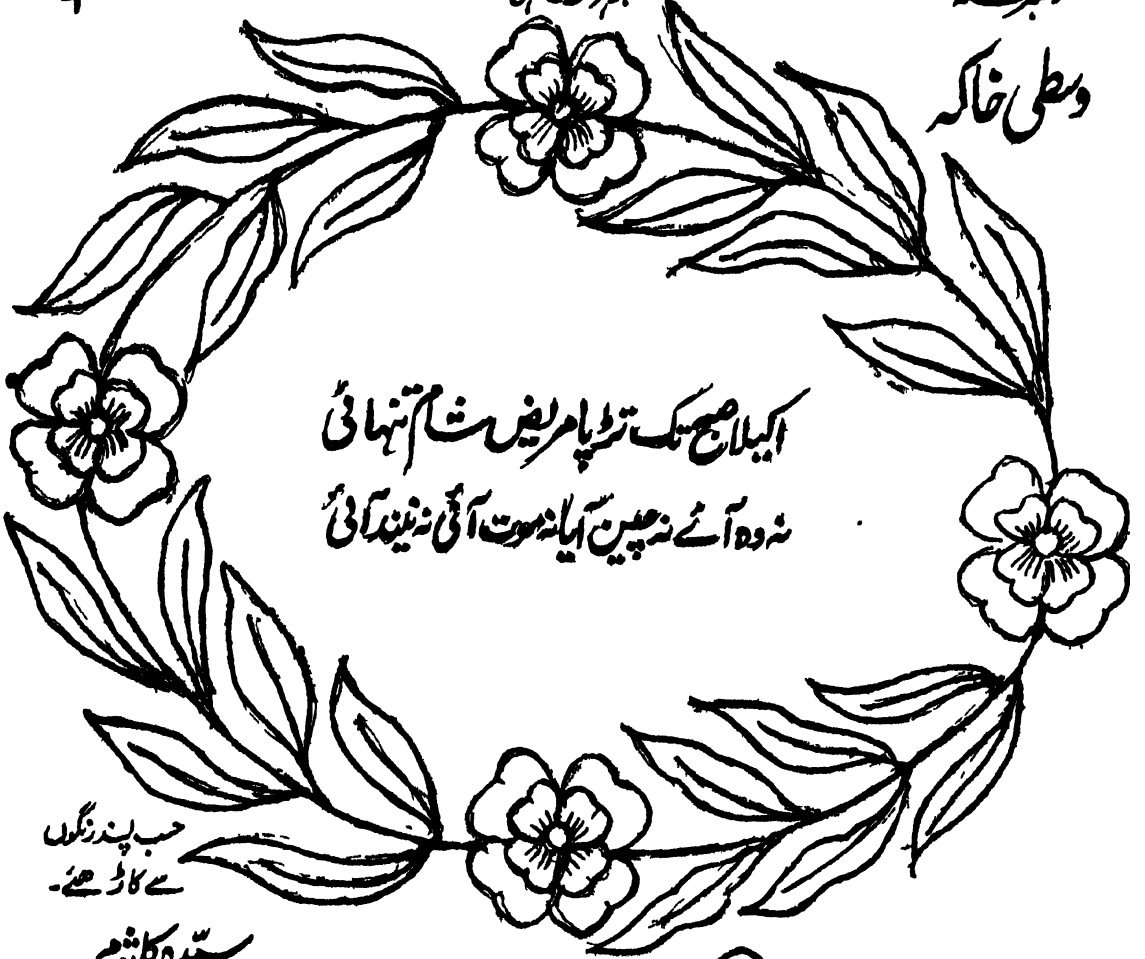 وسطی خاکہ
اکیلا صبح تک تڑپا مریض شام تنہائی
نہ وہ آئے نہ چین آیا نہ موت آئی نہ نیند آئی
حسب پسند رنگوں
سے کاڑھئے۔
سیّدہ کلثوم